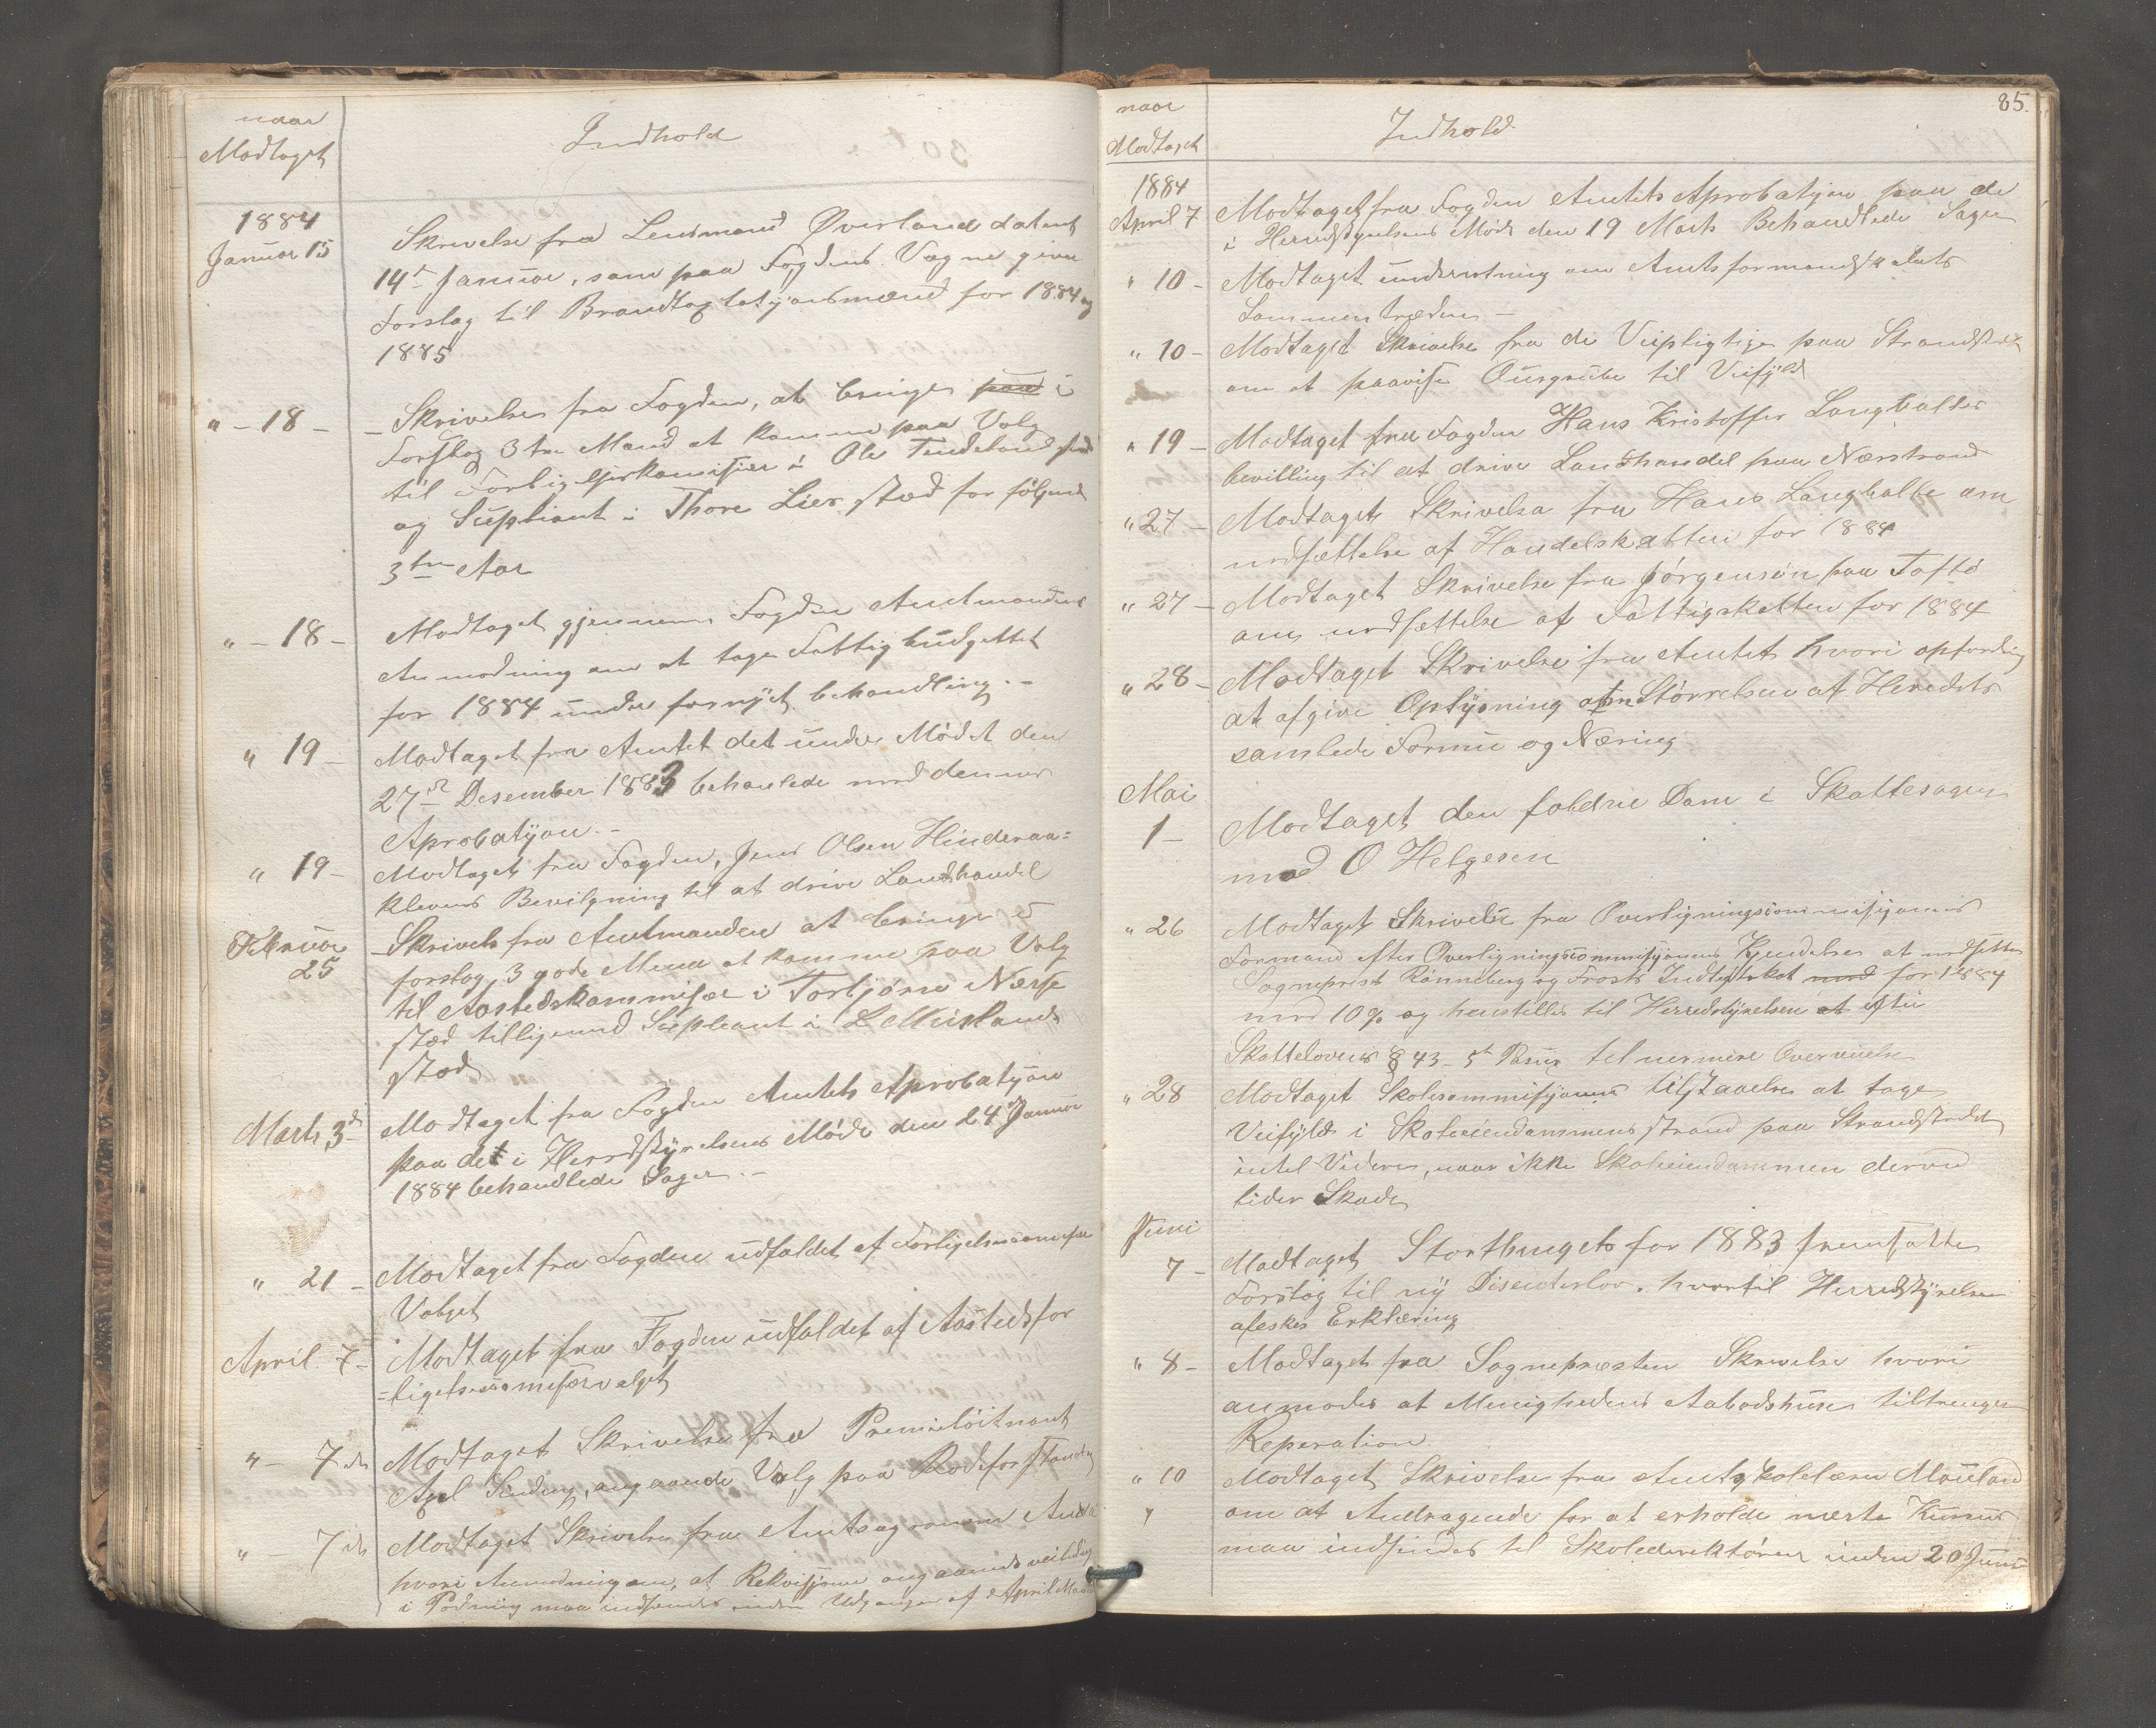 naar
Modtaget
Indhold
1884
Januar 15
Skrivelse fra Lensmand Øverland datert
14de Januar, som paa Fogdens Vegne giver
Forslag til Brandtagtstyonsmænd for 1884 og
1885
" - 18 -
Skrivelse fra Fogden, at bringe paa i
Forslag 3 tre Mænd at komme paa Valg
til Forligelseskomisær i Ole Tendelands sted
og Supliant i Thore Liers stæd for følgende
3tre Aar
" - 18 -
Modtaget gjennem Fogden Amtmandens
Anmodning om at tage Fattigbudgettet
for 1884 under fornyet behandling. -
" 19 -
Modtaget fra Amtet det under Mødet den
27de Desember 1883 behanlede med dennes
Aprobatyon. -
" 19 -
Modtaget fra Fogden, Jens Olsen Hinderaa=
klevens Bevilgning til at drive Landhandel
Februar
25
Skrivels fra Amtmanden at bringe i
forslag 3 gode Mænd at komme paa Valg
til Aastedskommisær i Torbjørn Nærse
stæd tilligemed Supleant i L Muslands
stæd
Marts 3de
Modtaget fra Fogden Amtets Aprobatyon
paa det i Herredstyrelsens Møde den 24de Januar
1884 behandlede Sager. -
" 21 -
Modtaget fra Fogden udfaldet af Forligelsescomisær
Valget
April 7 -
Modtaget fra Fogden udfaldet af Aastedsfor
=ligelsescomisærvalget
" - 7de
Modtaget Skrivelse fra Premieløitnant
Axel Sinding, angaaende Valg paa Rodeforstander
" - 7de
Modtaget Skrivelse fra Amtsagronom
hvori Anmodning om, at Rekvisjoner angaaende veiledning
i maa indsendes inden Udgangen af April Maaned
85.
naar
Modtaget
Indhold
1884
April 7
Modtaget fra Fogden Amtets Aprobatyon paa de
i Herredstyrelsens Møde den 19 Marts Behandlede Sager
" 10 -
Modtaget underretning om Amtsformandskabets
Sammentræden -
" 10 -
Modtaget Skrivelse fra de Veipligtige paa Strandstedet
om at paavise Ourgrube til Veifyld
" 19 -
Modtaget fra Fogden Hans Kristoffer Langballes
bevilling til at drive Landhandel paa Nærstrand
" 27 -
Modtaget Skrivelse fra Hans Langballe om
nedsættelse af Handelskatten for 1884
" 27 -
Modtaget Skrivelse fra Jørgensen paa Toftø
om nedsættelse af Fattigskatten for 1884
" 28 -
Modtaget Skrivelse fra Amtet hvori opfordring
at afgive Oplysning om Størrelsen af Heredets
samlede Formue og Næring
Mai
1 -
Modtaget den faldne Dom i Skattesagen
med O Helgesen
" 26
Modtaget Skrivelse fra Overligningscommisjonens
Formand efter Overligningscommisjonens Kjendelse at nedsætte
Sogneprest Rønneberg og Frosts Indtægtskat med for 1884
med 10% og henstilles til Herredstyrelsen at efter
Skattelovens § 43 - 5te Passus tel nermere Overveielse
" 28
Modtaget Skolecommisjonens tilstaaelse at tage
Veifyld i Skoleeiendommens strand paa Strandstedet
intel Videre, naar ikke Skoleeiendommen derved
lider Skade
Juni
7 -
Modtaget Storthingets for 1883 fremsatte
Forslag til ny Disenterlov, hvortil Herredstyrelsen
afeskes Erklæring
" 8 -
Modtaget fra Sognepræsten Skrivelse hvori
anmodes at Menighedens Aabodshuse tiltrenger
Reperation.
" 10
Modtaget Skrivelse fra Amtsskolelærer Mæland
"
om at Andragende for at erholde næste Kursus
maa indsendes til Skoledirektøren inden 20 Juni